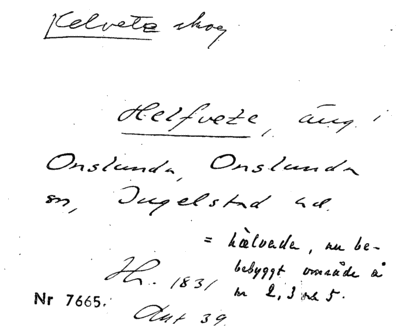 Helveta skog
Helfvete, äng i
Onslunda, Onslunda
sn, Ingelstad hd.
= hälveda, nu be-
bebyggt område å
nr 2, 3 och 5.
Hr. 1831
Nr 7665.
Akt 39.